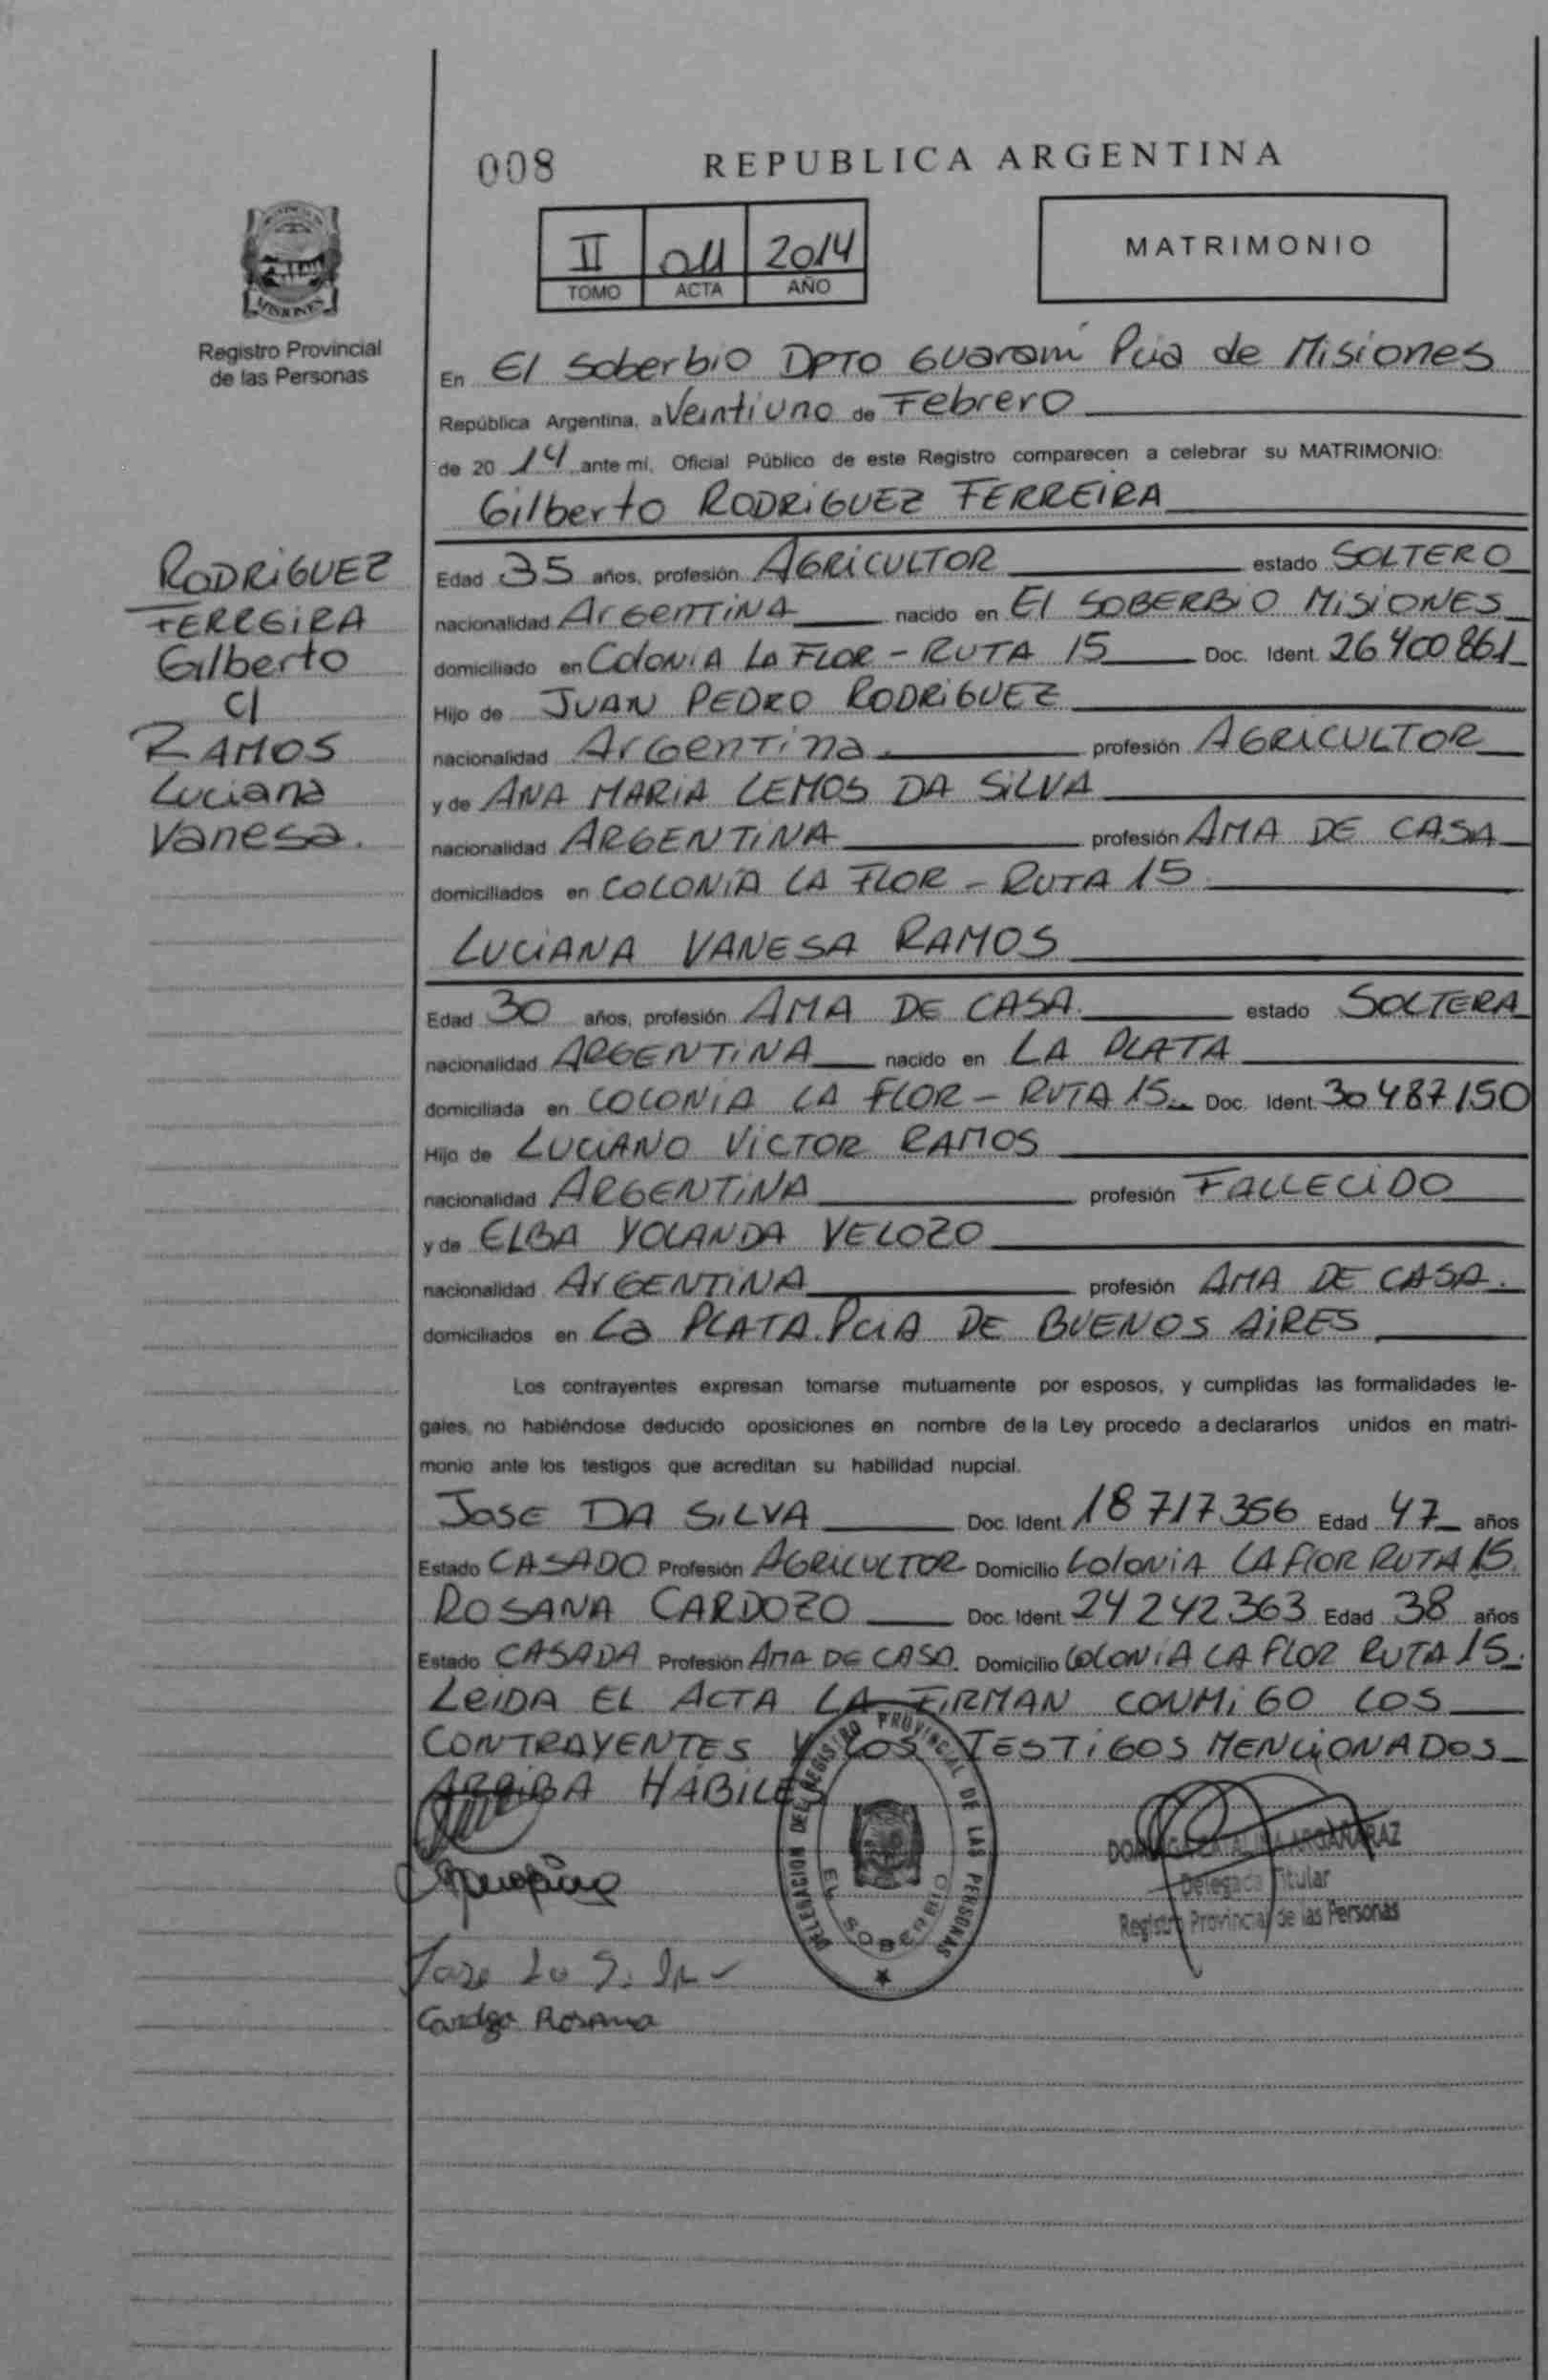 008
REPUBLICA ARGENTINA
II 011 2014
TOMO ACTA AÑO
MATRIMONIO
MISIONES
Registro Provincial
de las Personas
En El Soberbio DPTO Guaraní Pcia de Misiones
República Argentina, a Veintiuno de Febrero
de 20 14 ante mi, Oficial Público de este Registro comparecen a celebrar su MATRIMONIO:
Gilberto RODRIGUEZ FERREIRA
RODRIGUEZ
FERREIRA
Gilberto
c/
RAMOS
Luciana
Vanesa.
Edad 35 años, profesión AGRICULTOR estado SOLTERO
nacionalidad ArGenTINA nacido en El SOBERBIO MISIONES
domiciliado en Colonia La FLOR - RUTA 15 Doc. Ident. 26 400 861
Hijo de JUAN PEDRO RODRIGUEZ
nacionalidad ArGenTina. profesión AGRICULTOR
y de ANA MARIA LEMOS DA SILVA
nacionalidad ARGENTINA profesión AMA DE CASA
domiciliados en COLONIA LA FLOR - RUTA 15
LUCIANA VANESA RAMOS
Edad 30 años, profesión AMA DE CASA. estado SOLTERA
nacionalidad ARGENTINA nacido en LA PLATA
domiciliada en COLONIA LA FLOR - RUTA 15. Doc. Ident. 30 487 150
Hijo de LUCIANO VICTOR RAMOS
nacionalidad ARGENTINA profesión FALLECIDO
y de ELBA YOLANDA VELOZO
nacionalidad ArGENTINA profesión AMA DE CASA.
domiciliados en La PLATA. PCIA DE BUENOS AIRES
Los contrayentes expresan tomarse mutuamente por esposos, y cumplidas las formalidades le-
gales, no habiéndose deducido oposiciones en nombre de la Ley procedo a declararlos unidos en matri-
monio ante los testigos que acreditan su habilidad nupcial.
JOSE DA SILVA Doc. Ident. 18 717 356 Edad 47 años
Estado CASADO Profesión AGRICULTOR Domicilio Colonia LA FLOR RUTA 15.
ROSANA CARDOZO Doc. Ident. 24 242 363 Edad 38 años
Estado CASADA Profesión AMA DE CASA. Domicilio COLONIA LA FLOR RUTA 15.
LEIDA EL ACTA LA FIRMAN CONMIGO LOS
CONTRAYENTES Y LOS TESTIGOS MENCIONADOS
ARRIBA HÁBILES
DELEGACION DEL REGISTRO PROVINCIAL DE LAS PERSONAS
EL SOBERBIO
ARGAÑARAZ
Delegada Titular
Registro Provincial de las Personas
Rosana